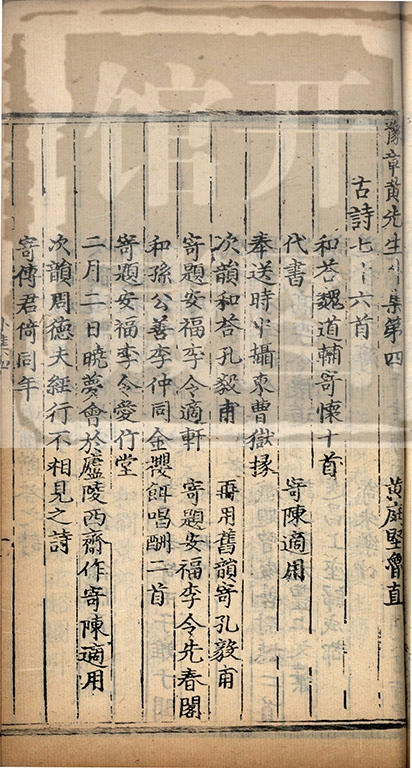 开
馆
豫章黄先生外集第四
黄庭堅魯直
古詩七十六首
和荅魏道輔寄懷十首
代書 寄陳適用
奉送時中攝東曹獄掾
次韻和荅孔毅甫 再用舊韻寄孔毅甫
寄題安福李令適軒 寄題安福李令先春閣
和孫公善李仲同金櫻餌唱酬二首
寄題安福李令愛竹堂
二月二日曉夢會於廬陵西齋作寄陳適用
次韻周德夫經行不相見之詩
寄傅君倚同年